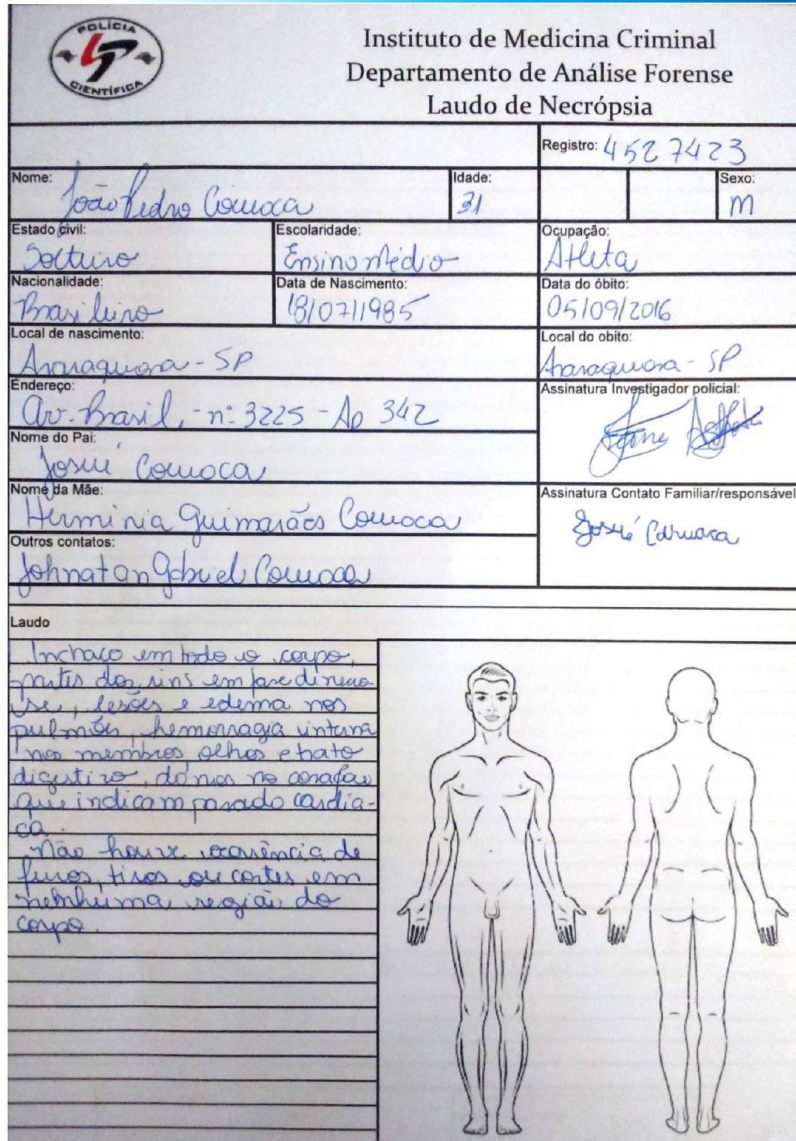 POLÍCIA
CIENTÍFICA
Instituto de Medicina Criminal
Departamento de Análise Forense
Laudo de Necrópsia
Registro: 4527423
Nome: João Pedro
Idade: 31
Sexo: M
Estado civil: Solteiro
Escolaridade: Ensino Médio
Ocupação: Atleta
Nacionalidade: Brasileiro
Data de Nascimento: 18/07/1985
Data do óbito: 05/09/2016
Local de nascimento: Araraquara - SP
Local do obito: Araraquara - SP
Endereço: Av. Brasil, - nº 3225 - Ap 342
Assinatura Investigador policial:
Nome do Pai: Josué
Nome da Mãe: Hermínia Guimarães
Assinatura Contato Familiar/responsável
Josué
Outros contatos: Johnatan Gabriel
Laudo
Inchaço em todo o corpo,
partes dos rins em fase de necro
se, lesões e edema nos
pulmões, hemorragia interna
nos membros, olhos e trato
digestivo, danos no coração
que indicam parada cardía-
ca.
Não houve ocorrência de
furos, tiros ou cortes em
nenhuma região do
corpo.